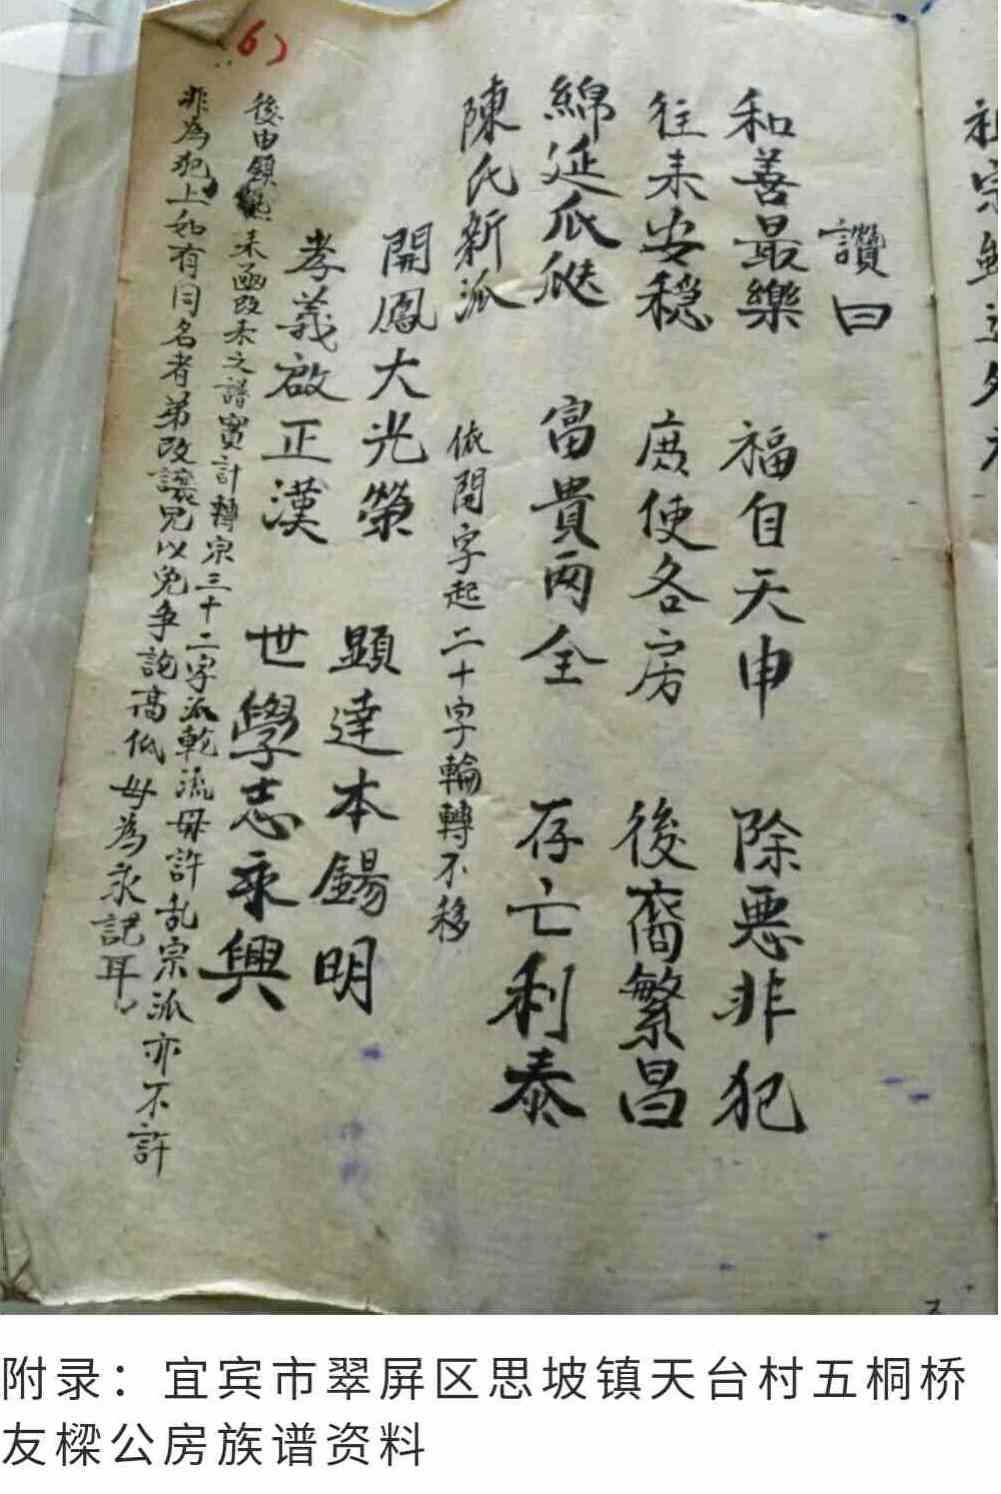 讚曰
和善最樂 福自天申 除惡非犯
往来安穏 廣使各房 後裔繁昌
綿延瓜瓞 富貴両全 存亡利泰
陳氏新派 依開字起二十字輪轉不移
開鳳大光榮 顯達本錫明
孝義啟正漢 世學志永興
後由鎮 未之譜實計轉宗三十二字派乾流毋許乱宗派亦不許
非為犯上如有同名者弟改讓兄以免争論高低毋為永記耳
6)
附录：宜宾市翠屏区思坡镇天台村五桐桥
友樑公房族谱资料